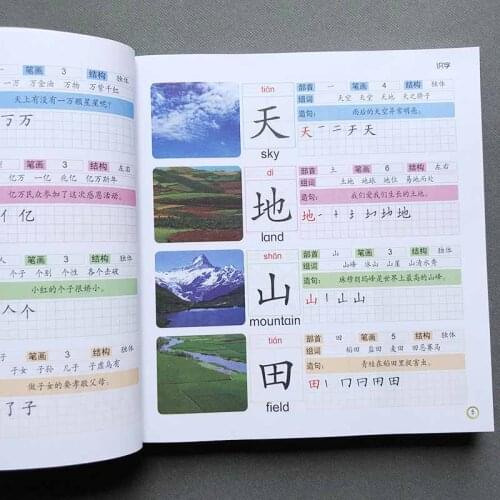 一万 万金油 万物 万紫千红
笔画 3 结构 独体
天上有没有一万颗星星呢?
丆 万
笔画 3 结构 左右
亿万 一亿 兆亿 亿万斯年
亿万民众参加了这次感恩活动。
亻 亿
笔画 3 结构 独体
个子 个别 个性 各个击破
小红的个子很娇小。
人 个
笔画 3 结构 独体
子女 子孙 儿子 子虚乌有
做子女的要孝敬父母。
了 子
识字
tiān
天
sky
部首 一 笔画 4 结构 独体
组词 天空 天堂 天地 天之骄子
造句: 雨后的天空异常明亮。
天 一 二 チ 天
dì
地
land
部首 土 笔画 6 结构 左右
组词 土地 地球 地位 易地而处
造句: 我们爱我们生长的土地。
地
shān
山
mountain
部首 山 笔画 3 结构 独体
组词 山峰 冰山 山崖 山清水秀
造句: 珠穆朗玛峰是世界上最高的山峰。
山 丨 山 山
tián
田
field
部首 田 笔画 5 结构 独体
组词 稻田 盐田 麦田 田忌赛马
造句: 青蛙在稻田里捉害虫。
田 丨 冂 冃 用 田